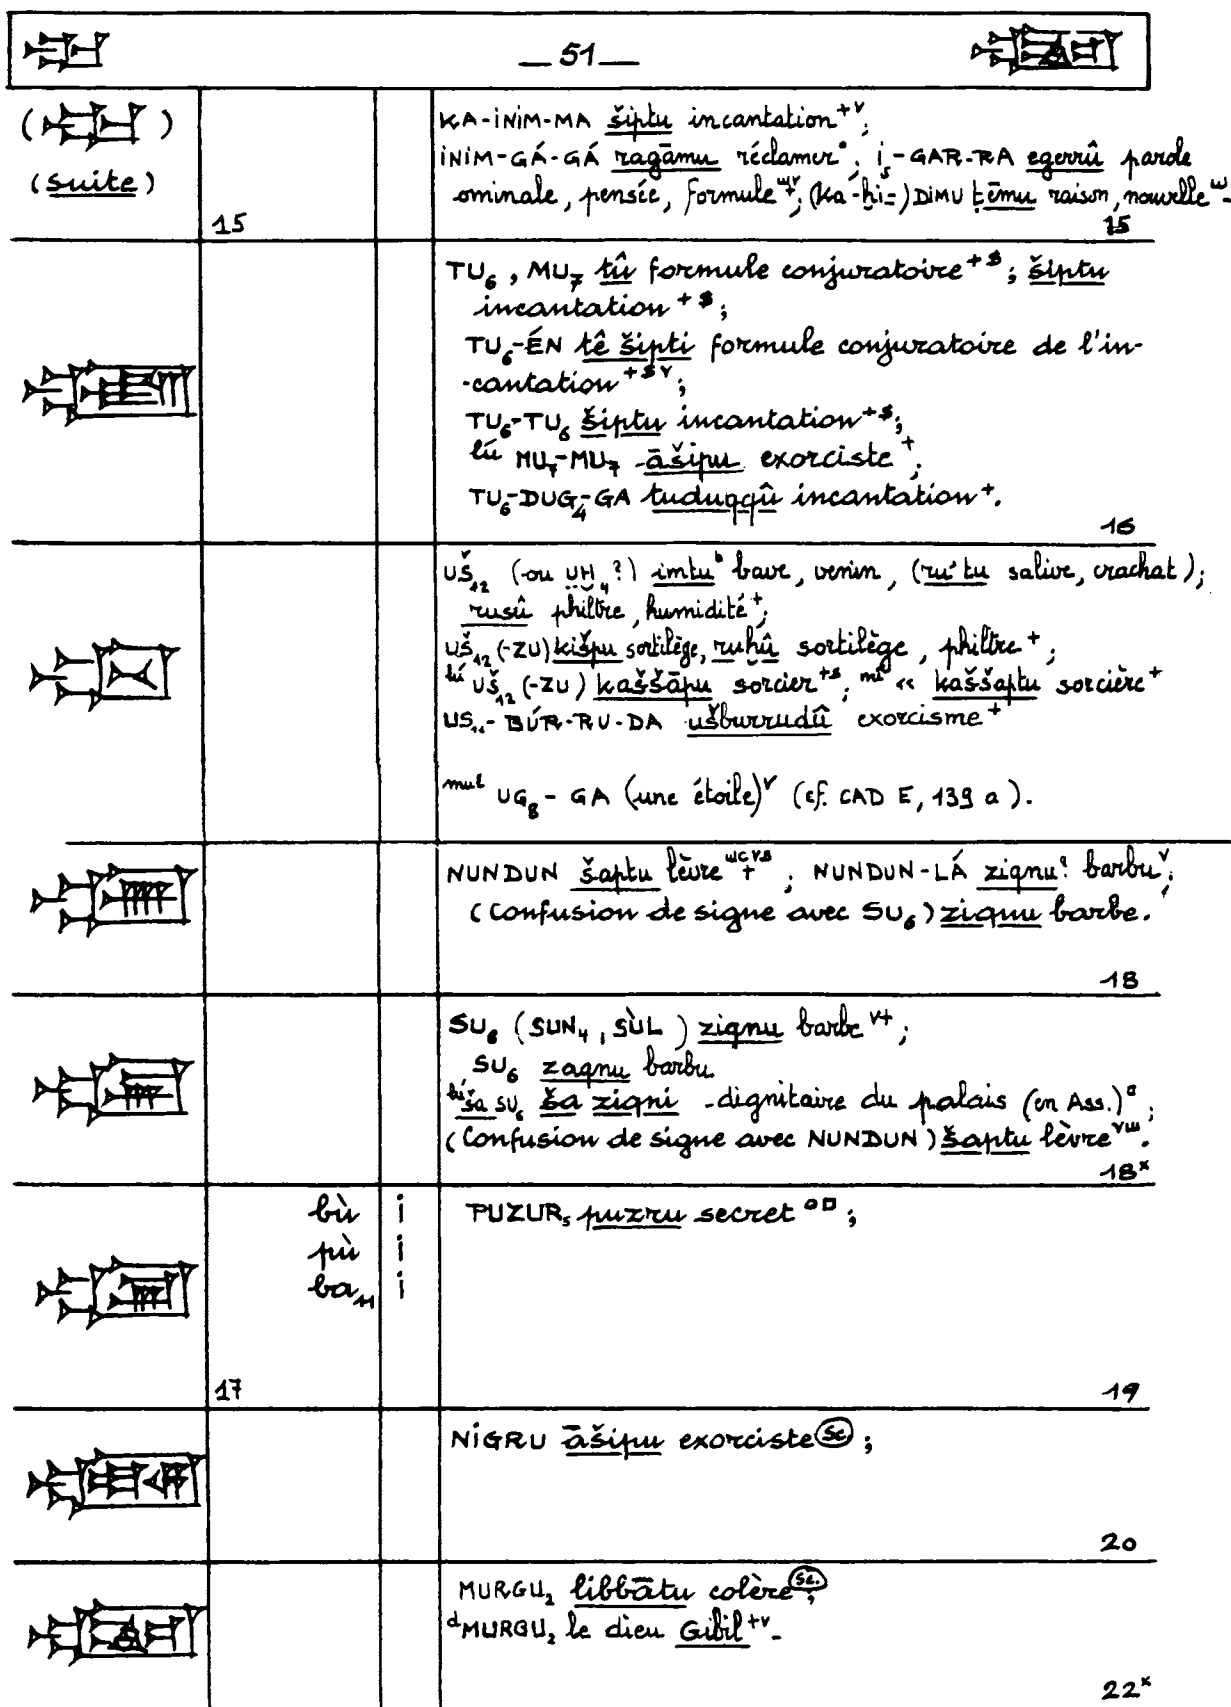 — 51 —
(𒅗)
(suite)
KA-INIM-MA šiptu incantation⁺ᵛ;
INIM-GÁ-GÁ ragāmu réclamer°; i₅-GAR-RA egerrû parole
ominale, pensée, formule; (ka-hi-)DIMU ṭēmu raison, nouvelle
15 15
TU₆, MU₇ tû formule conjuratoire⁺ˢ; šiptu
incantation⁺ˢ;
TU₆-ÉN tê šipti formule conjuratoire de l'in-
-cantation⁺ˢᵛ;
TU₆-TU₆ šiptu incantation⁺ˢ;
lú MU₇-MU₇ āšipu exorciste⁺;
TU₆-DUG₄-GA tuduqqû incantation⁺.
16
UŠ₁₂ (ou UH₄?) imtuᵇ bave, venin, (ru'tu salive, crachat);
rusû philtre, humidité⁺;
UŠ₁₂(-ZU) kišpu sortilège, ruhû sortilège, philtre⁺;
ˡúUŠ₁₂(-ZU) kaššāpu sorcier⁺ˢ; ᵐí « kaššaptu sorcière⁺
UŠ₁₁-BÚR-RU-DA ušburrudû exorcisme⁺
ᵐᵘˡ UG₈-GA (une étoile)ᵛ (cf. CAD E, 139 a).
NUNDUN šaptu lèvre; NUNDUN-LÁ ziqnu? barbuᵛ;
(Confusion de signe avec SU₆) ziqnu barbe.
18
SU₆ (SUN₄, SÙL) ziqnu barbeᵛ⁺;
SU₆ zaqnu barbu
ˡúša SU₆ ša ziqni dignitaire du palais (en Ass.);
(Confusion de signe avec NUNDUN) šaptu lèvreᵛʷ.
18ˣ
bù i PUZUR₅ puzru secret°□;
pù i
ba₁₁ i
17 19
NIGRU āšipu exorciste (Sc);
20
MURGU₂ libbātu colère (Sc.);
ᵈMURGU₂ le dieu Gibil⁺ᵛ.
22ˣ